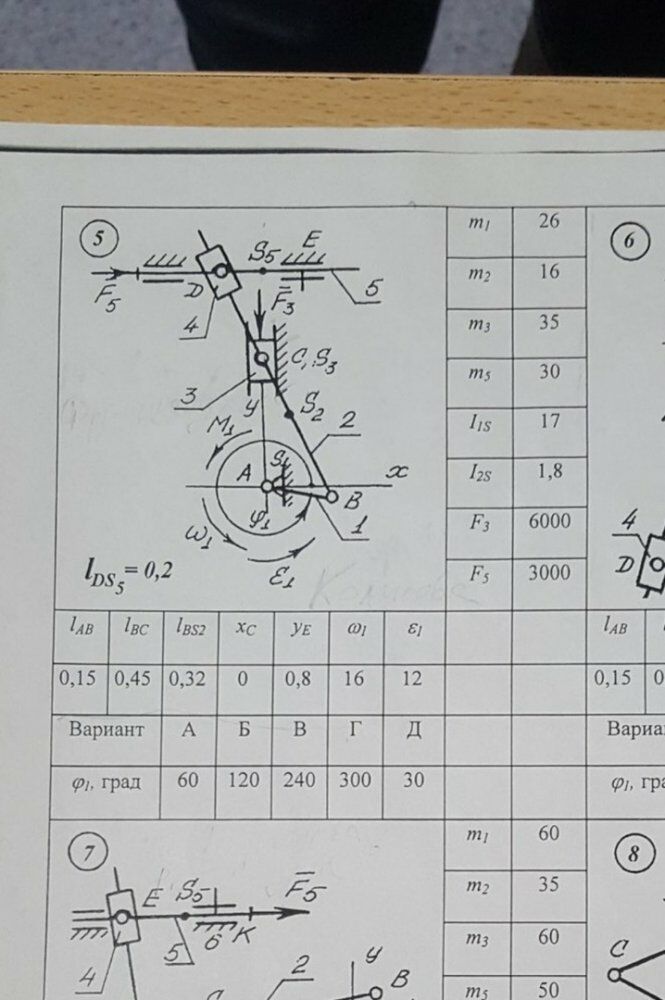 5
S5 E
F̅5 D F̅3 5
4
C, S3
3
y S2
M1 2
A S1 x
φ1 B
1
ω1
ε1
lDS5 = 0,2
m1 26
m2 16
m3 35
m5 30
I1S 17
I2S 1,8
F3 6000
F5 3000
lAB lBC lBS2 xC yE ω1 ε1
0,15 0,45 0,32 0 0,8 16 12
Вариант А Б В Г Д
φ1, град 60 120 240 300 30
6
4
D
lAB
0,15 0
Вариа
φ1, гра
7
E S5 F̅5
6 K
4 5
2 y B
m1 60
m2 35
m3 60
m5 50
8
C